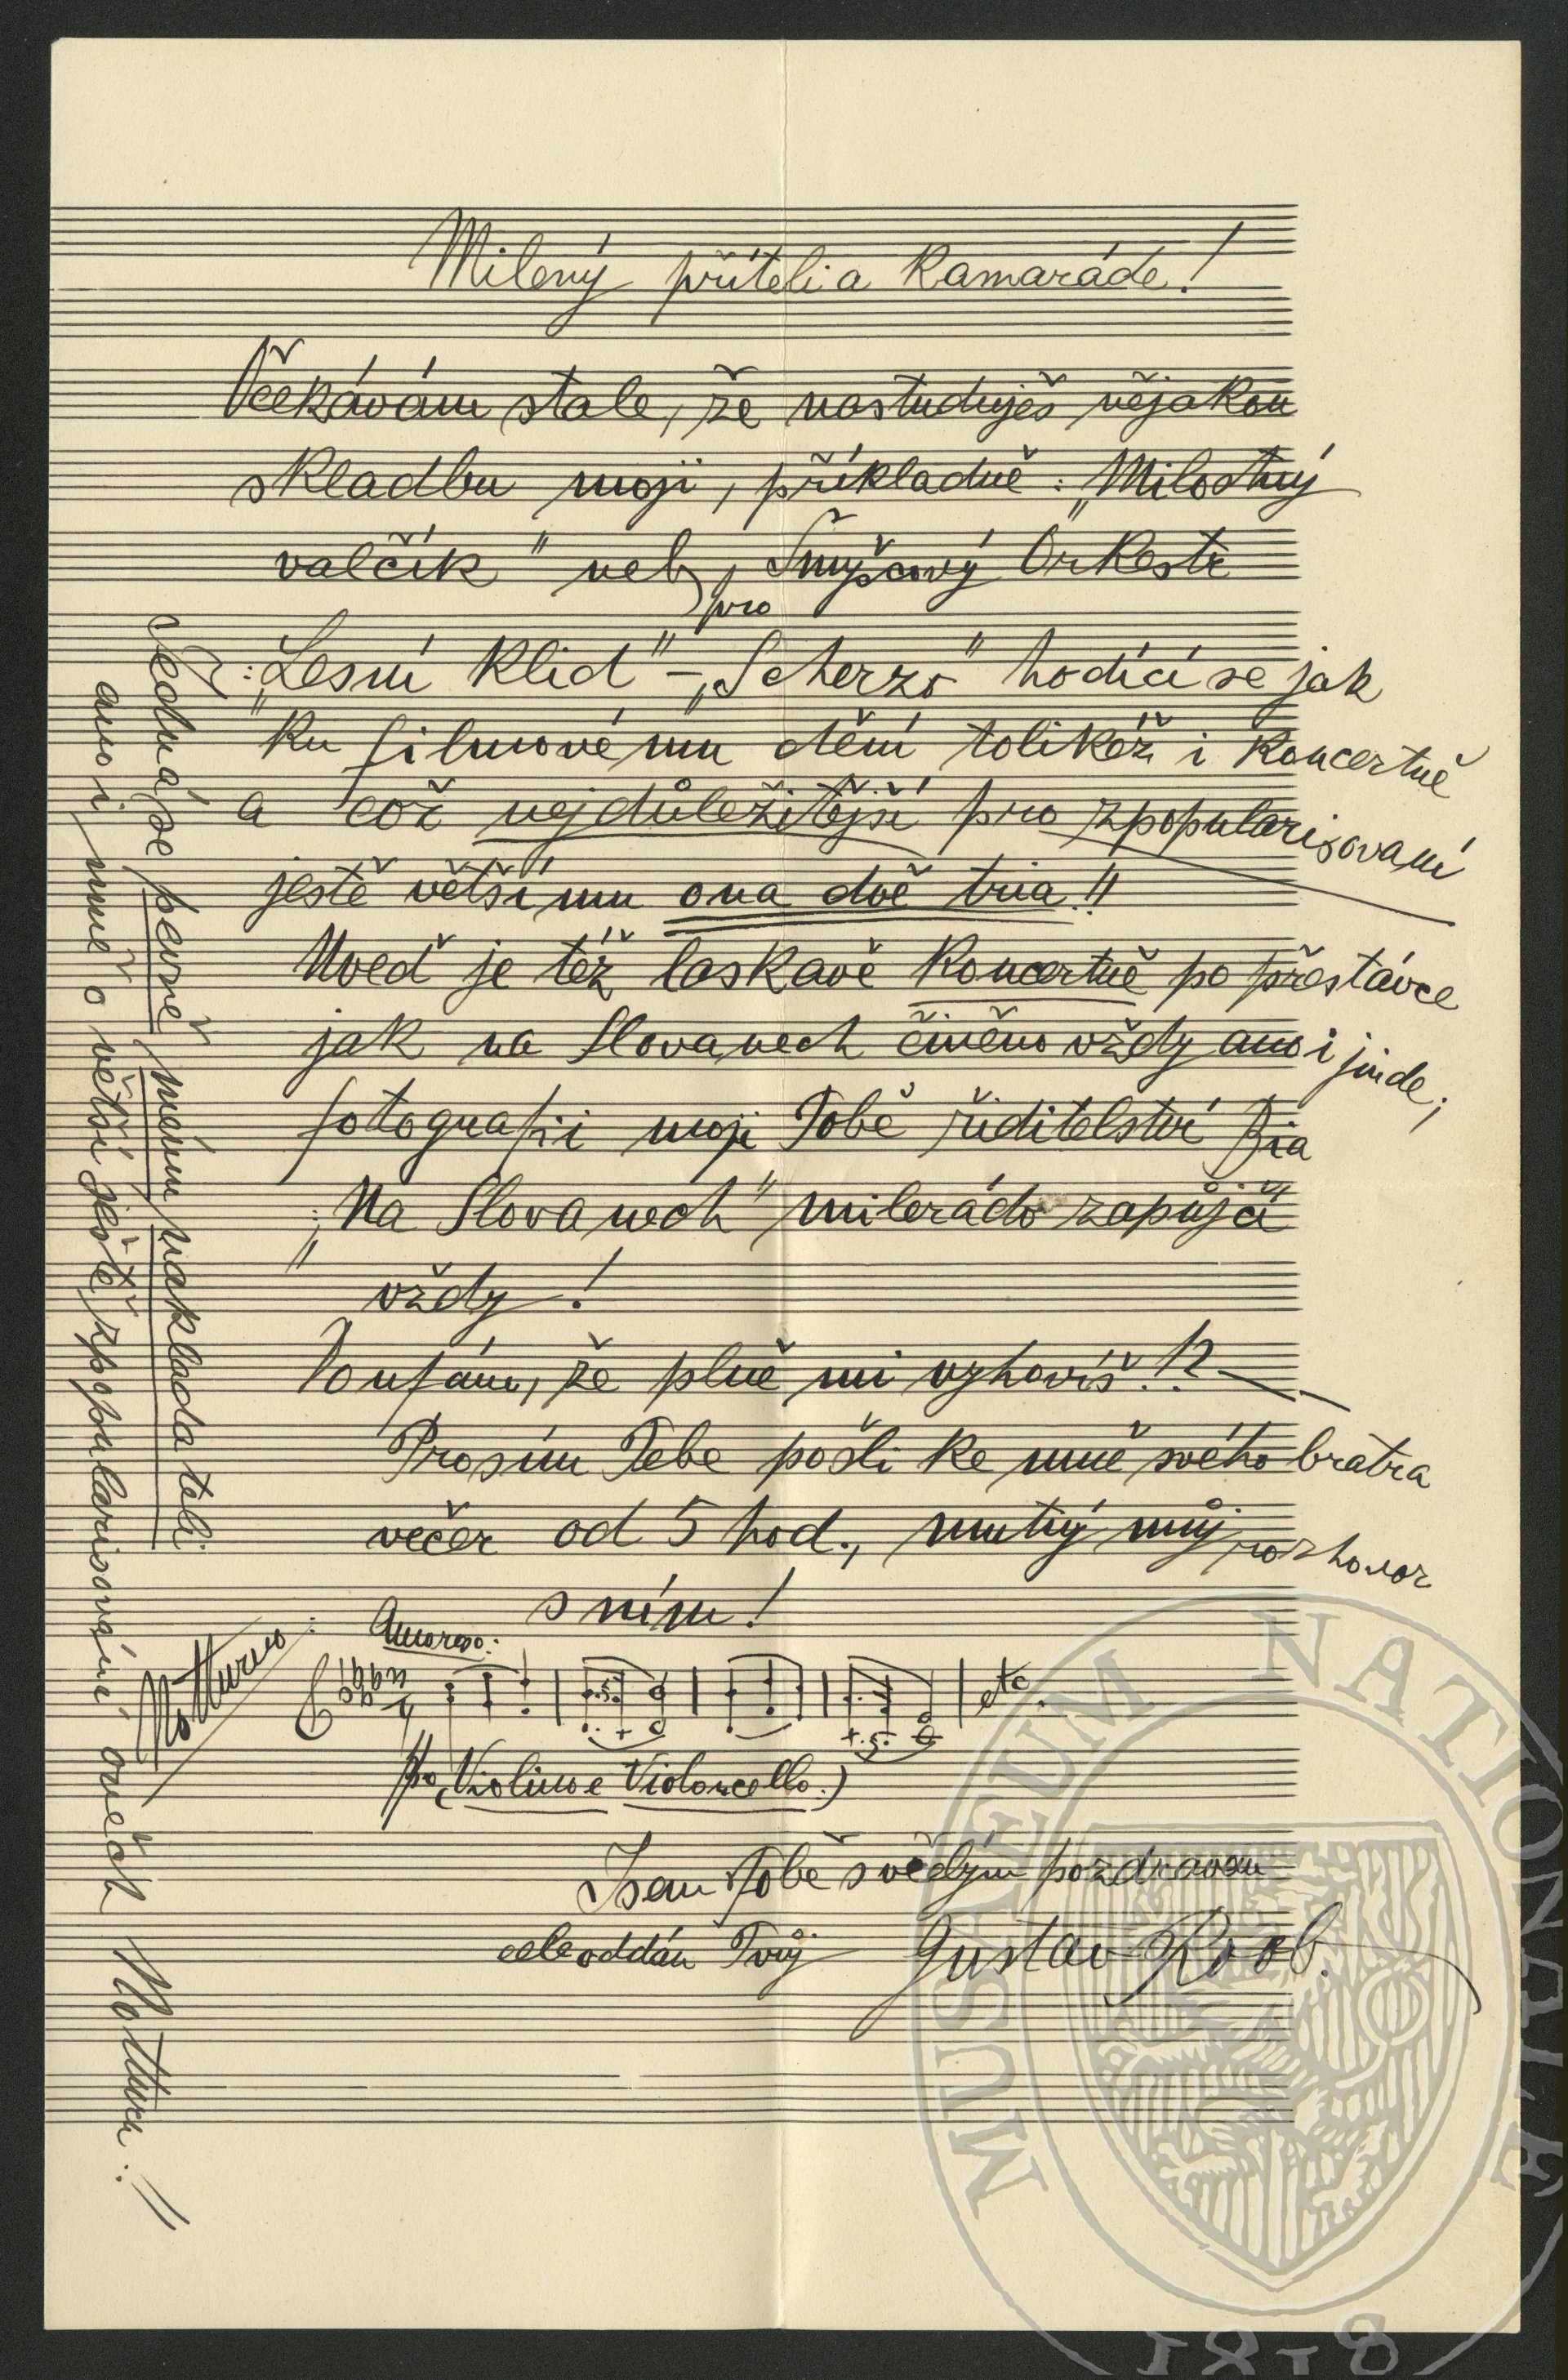 Milený příteli a Kamaráde!
Včekávám stale, že nastuduješ nějakou
skladbu moji, příkladně: „Milostný
valčík" neb pro Smyšcový Orkestr
: „Lesní Klid" – „Scherzo" hodící se jak
ku filmovému dění tolikéž i Koncertně
a což nejdůležitější pro zpopularisovaní
jestě většímu ona dvě tria!!
Uveď je též laskavě Koncertně po přestávce
jak na Slovanech činěno vždy ano i jinde;
fotografii moji Tobě řiditelství Bia
: „Na Slovanech" milerádo zapůjčí
vždy!
Doufám, že plně mi vyhovíš!?—
Prosím Tebe pošli ke mně svého bratra
večer od 5 hod., nutný můj rozhovor
s ním!
Notturno: Amoroso:
etc.
pro (Violino e Violoncello.)
Jsem Tobě s vědým pozdravem
cele oddán Tvůj Gustav Roob.
Jedná se pevně mému nakladateli
ano i mně o větší jestě zpopularisování oněch Notturn!!
MUSAEUM NATIONALE
1818